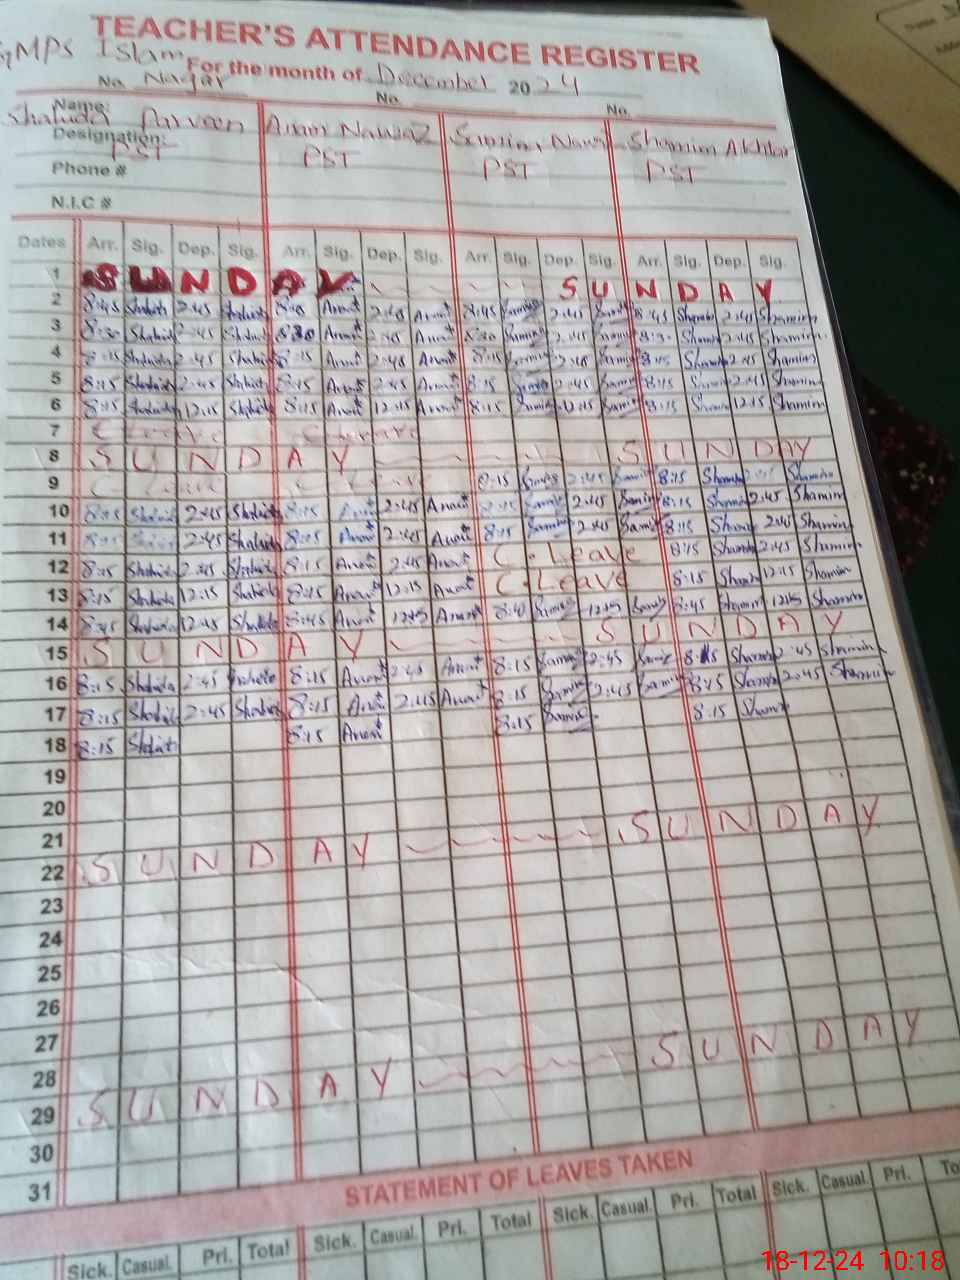 TEACHER'S ATTENDANCE REGISTER
GMPS Islam Nagar
For the month of December 2024
No. No. No.
Name: Shahida Parveen Anam Nawaz Samina Shamim Akhtar
Designation: PST PST PST PST
Phone #
N.I.C #
Dates Arr. Sig. Dep. Sig. Arr. Sig. Dep. Sig. Arr. Sig. Dep. Sig. Arr. Sig. Dep. Sig.
1 SUNDAY SUNDAY
2 8:45 Shahida 2:45 Shahida 8:45 2:45 8:45 Samina 2:45 Samina 8:45 Shamim 2:45 Shamim
3 8:30 Shahida 2:45 Shahida 8:30 2:45 8:30 Samina 2:45 8:30 Shamim 2:45 Shamim
4 8:15 Shahida 2:45 Shahida 8:15 2:45 8:15 Samina 2:45 Samina 8:15 Shamim 2:45 Shamim
5 8:15 Shahida 2:45 Shahida 8:15 2:45 8:15 Samina 2:45 Samina 8:15 Shamim 2:45 Shamim
6 8:15 Shahida 12:15 Shahida 8:15 12:15 8:15 Samina 12:15 Samina 8:15 Shamim 12:15 Shamim
7 C Leave C Leave
8 SUNDAY SUNDAY
9 C Leave C Leave 8:15 Samina 2:45 Samina 8:15 Shamim Shamim
10 8:15 Shahida 2:45 Shahida 8:15 2:45 8:15 Samina 2:45 Samina 8:15 Shamim 2:45 Shamim
11 8:15 2:45 Shahida 8:15 2:45 8:15 Samina 2:45 Samina 8:15 Shamim 2:45 Shamim
12 8:15 Shahida 2:45 Shahida 8:15 2:45 C. Leave 8:15 Shamim 2:45 Shamim
13 8:15 Shahida 12:15 Shahida 8:15 12:15 C. Leave 8:15 Shamim 12:15 Shamim
14 8:45 Shahida 12:45 Shahida 8:45 Samina Samina 8:45 Shamim Shamim
15 SUNDAY SUNDAY
16 8:15 Shahida 2:45 Shahida 8:15 2:45 8:15 Samina 2:45 Samina 8:15 Shamim 2:45 Shamim
17 8:15 Shahida 2:45 Shahida 8:15 2:45 8:15 Samina 2:45 Samina 8:15 Shamim 2:45 Shamim
18 8:15 Shahida 8:15 8:15 Samina 8:15 Shamim
19
20
21
22 SUNDAY SUNDAY
23
24
25
26
27
28
29 SUNDAY SUNDAY
30
31
STATEMENT OF LEAVES TAKEN
Sick. Casual. Pri. Total Sick. Casual. Pri. Total Sick. Casual. Pri. Total Sick. Casual. Pri.
18-12-24 10:18